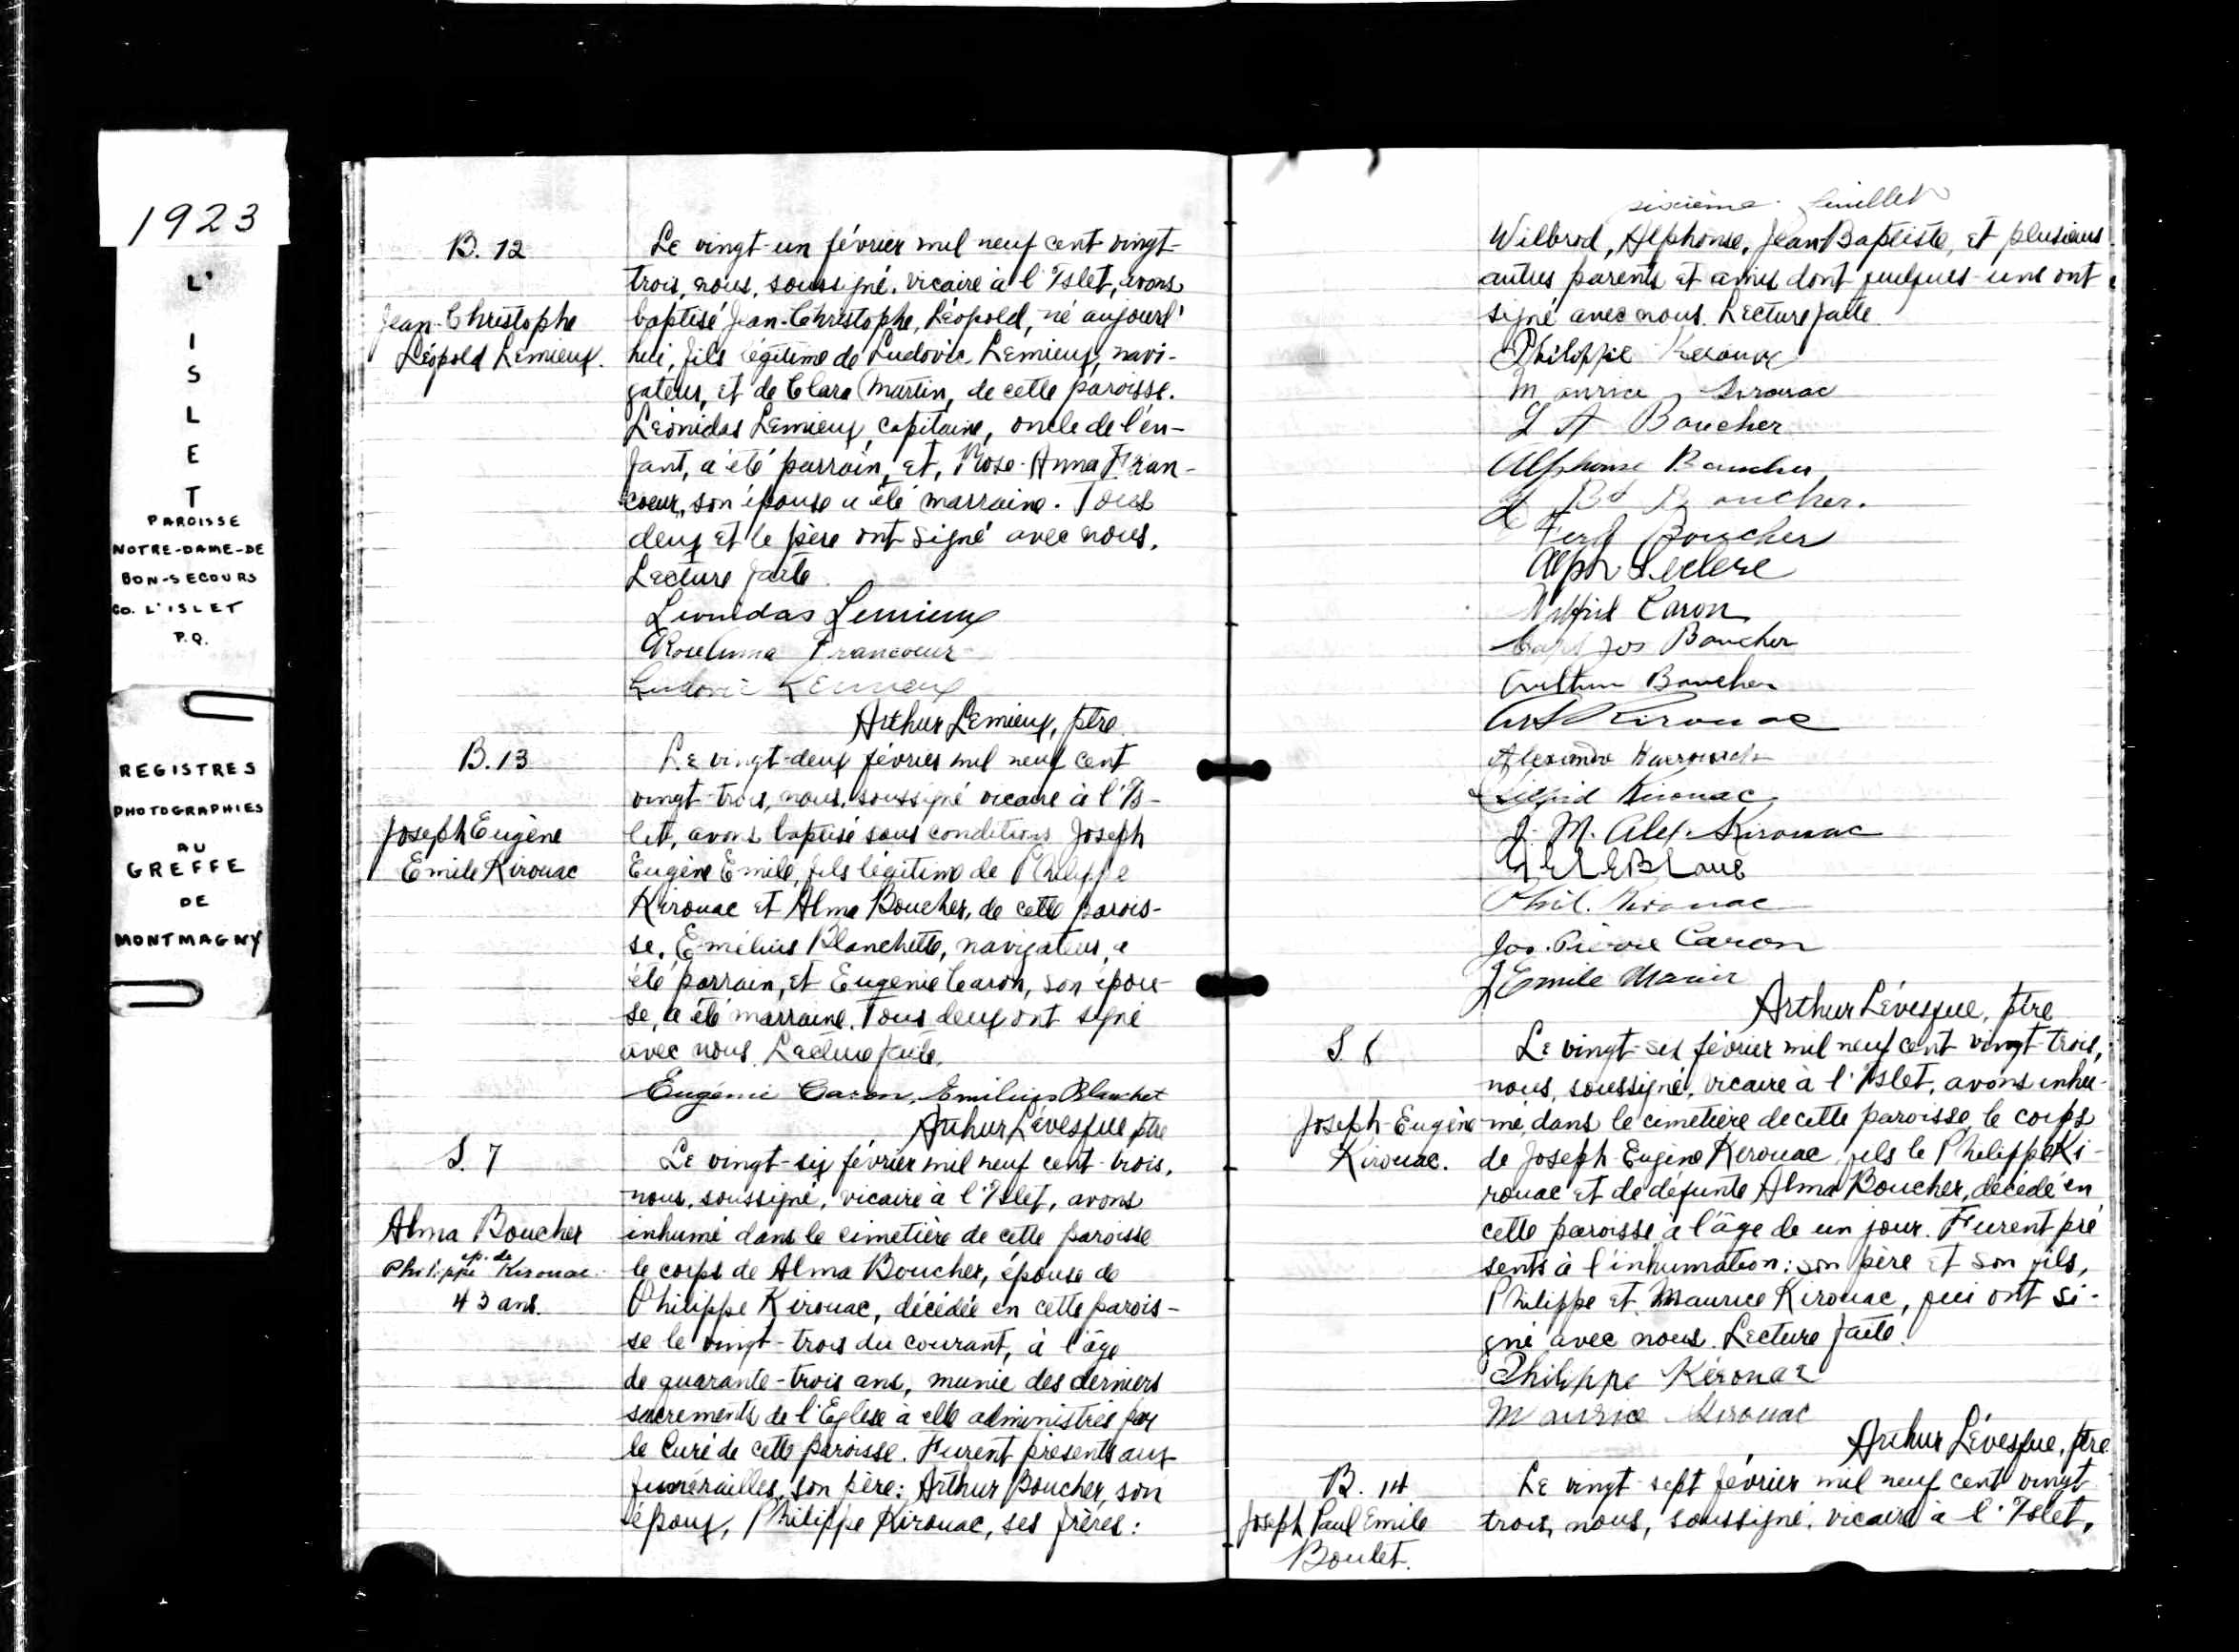 1923
L'
I
S
L
E
T
PAROISSE
NOTRE-DAME-DE
BON-SECOURS
CO. L'ISLET
P.Q.
REGISTRES
PHOTOGRAPHIES
AU
GREFFE
DE
MONTMAGNY
B. 12
Jean-Christophe
Léopold Lemieux.
Le vingt-un février mil neuf cent vingt-
trois, nous, soussigné, vicaire à l'Islet, avons
baptisé Jean-Christophe, Léopold, né aujourd'
hui, fils légitime de Ludovic Lemieux, navi-
gateur, et de Clara Martin, de cette paroisse.
Léonidas Lemieux, capitaine, oncle de l'en-
fant, a été parrain, et, Rose-Anna Fran-
coeur, son épouse a été marraine. Tous
deux et le père ont signé avec nous.
Lecture faite.
Leonidas Lemieux
RoseAnna Francoeur
Ludovic Lemieux
Arthur Lemieux, ptre
B. 13
Joseph Eugène
Emile Kirouac
Le vingt-deux février mil neuf cent
vingt-trois, nous, soussigné vicaire à l'Is-
let, avons baptisé sous conditions Joseph
Eugène Emile, fils légitime de Philippe
Kirouac et Alma Boucher, de cette parois-
se. Emélius Blanchette, navigateur, a
été parrain, et Eugenie Caron, son épou-
se, a été marraine. Tous deux ont signé
avec nous. Lecture faite.
Eugénie Caron, Emilius Blanchet
Arthur Lévesque ptre
S. 7
Alma Boucher
ép. de
Philippe Kirouac
43 ans.
Le vingt-six février mil neuf cent-trois,
nous, soussigné, vicaire à l'Islet, avons
inhumé dans le cimetière de cette paroisse
le corps de Alma Boucher, épouse de
Philippe Kirouac, décédée en cette parois-
se le vingt-trois du courant, à l'âge
de quarante-trois ans, munie des derniers
sacrements de l'Eglise à elle administrés par
le Curé de cette paroisse. Furent présents aux
funérailles, son père: Arthur Boucher, son
époux, Philippe Kirouac, ses frères:
sixième feuillet
Wilbrod, Alphonse, Jean Baptiste, et plusieurs
autres parents et amis dont quelques-uns ont
signé avec nous. Lecture faite
Philippe Kerouac
Maurice Kirouac
L A Boucher
Alphonse Boucher
J Bt Boucher.
Ferd Boucher
Alph Leclerc
Caron
Capt Jos Boucher
Arthur Boucher
Art Kirouac
Alexandre
Kirouac
J. M. Alex. Kirouac
LEBLanc
Phil. Kirouac
Jos. Pierre Caron
J Emile
Arthur Lévesque, ptre
S. 8
Joseph-Eugène
Kirouac.
Le vingt-six février mil neuf cent vingt-trois,
nous, soussigné, vicaire à l'Islet, avons inhu-
mé, dans le cimetière de cette paroisse, le corps
de Joseph-Eugène Kerouac, fils le Philippe Ki-
rouac et de défunte Alma Boucher, décédé en
cette paroisse à l'âge de un jour. Furent pré
sents à l'inhumation: son père et son fils,
Philippe et Maurice Kirouac, qui ont si-
gné avec nous. Lecture faite.
Philippe Kérouac
Maurice Kirouac
Arthur Lévesque, ptre
B. 14
Joseph Paul Emile
Boulet.
Le vingt-sept février mil neuf cent vingt
trois, nous, soussigné, vicaire à l'Islet,